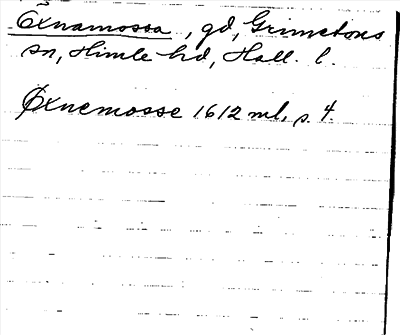 Öxnamossa, gd, Grimetons
sn, Himle hd, Hall. l.
Øxnemosse 1612 ml, s. 4.